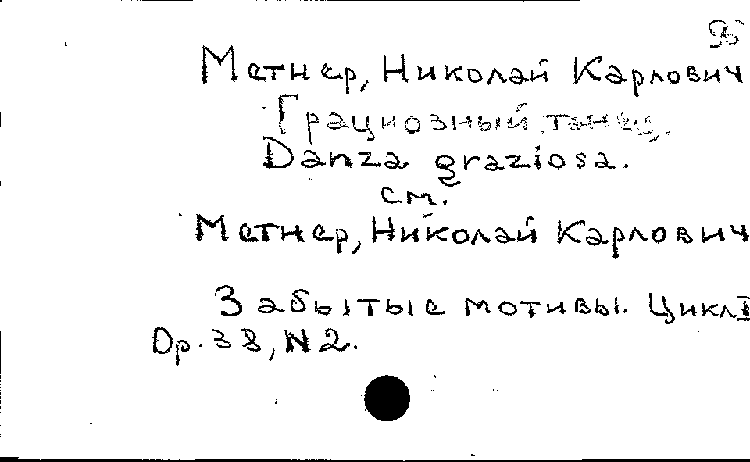 Метнер, Николай Карлович
Грациозный танец.
Danza graziosa.
см.
Метнер, Николай Карлович
Забытые мотивы. Цикл I
Op. 38, N 2.